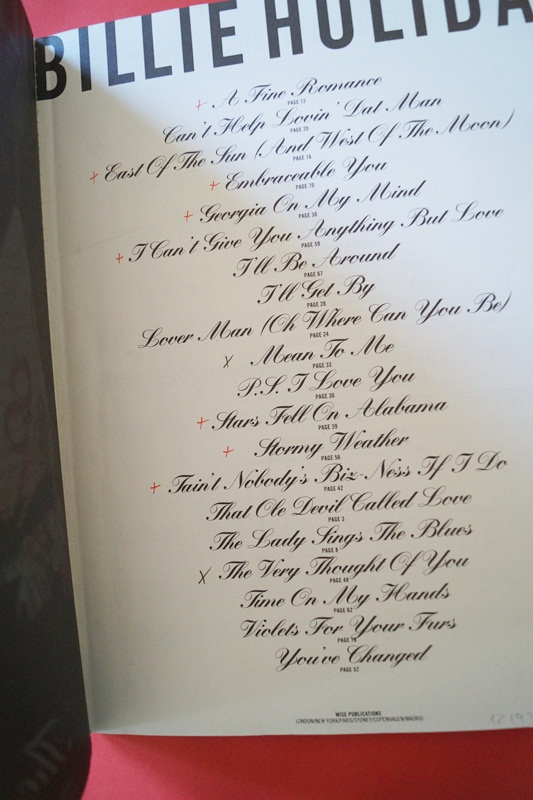 BILLIE HOLIDA
+ A Fine Romance
PAGE 12
Can't Help Lovin' Dat Man
PAGE 20
+ East Of The Sun (And West Of The Moon)
PAGE 16
+ Embraceable You
PAGE 70
+ Georgia On My Mind
PAGE 30
+ I Can't Give You Anything But Love
PAGE 59
I'll Be Around
PAGE 67
I'll Get By
PAGE 28
Lover Man (Oh Where Can You Be)
PAGE 24
X Mean To Me
PAGE 33
P.S. I Love You
PAGE 36
+ Stars Fell On Alabama
PAGE 39
+ Stormy Weather
PAGE 56
+ Tain't Nobody's Biz-Ness If I Do
PAGE 42
That Ole Devil Called Love
PAGE 3
The Lady Sings The Blues
PAGE 8
X The Very Thought Of You
PAGE 48
Time On My Hands
PAGE 62
Violets For Your Furs
You've Changed
PAGE 52
WISE PUBLICATIONS
LONDON/NEW YORK/PARIS/SYDNEY/COPENHAGEN/MADRID